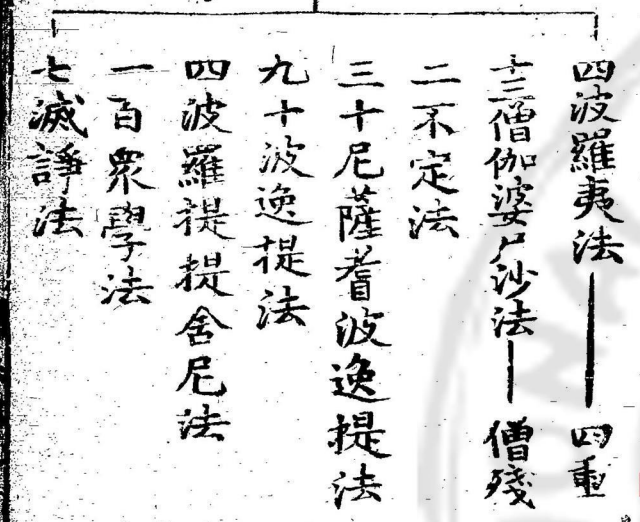 四波羅夷法━━四重
十三僧伽婆尸沙法━僧殘
二不定法
三十尼薩耆波逸提法
九十波逸提法
四波羅提提舍尼法
一百衆學法
七滅諍法